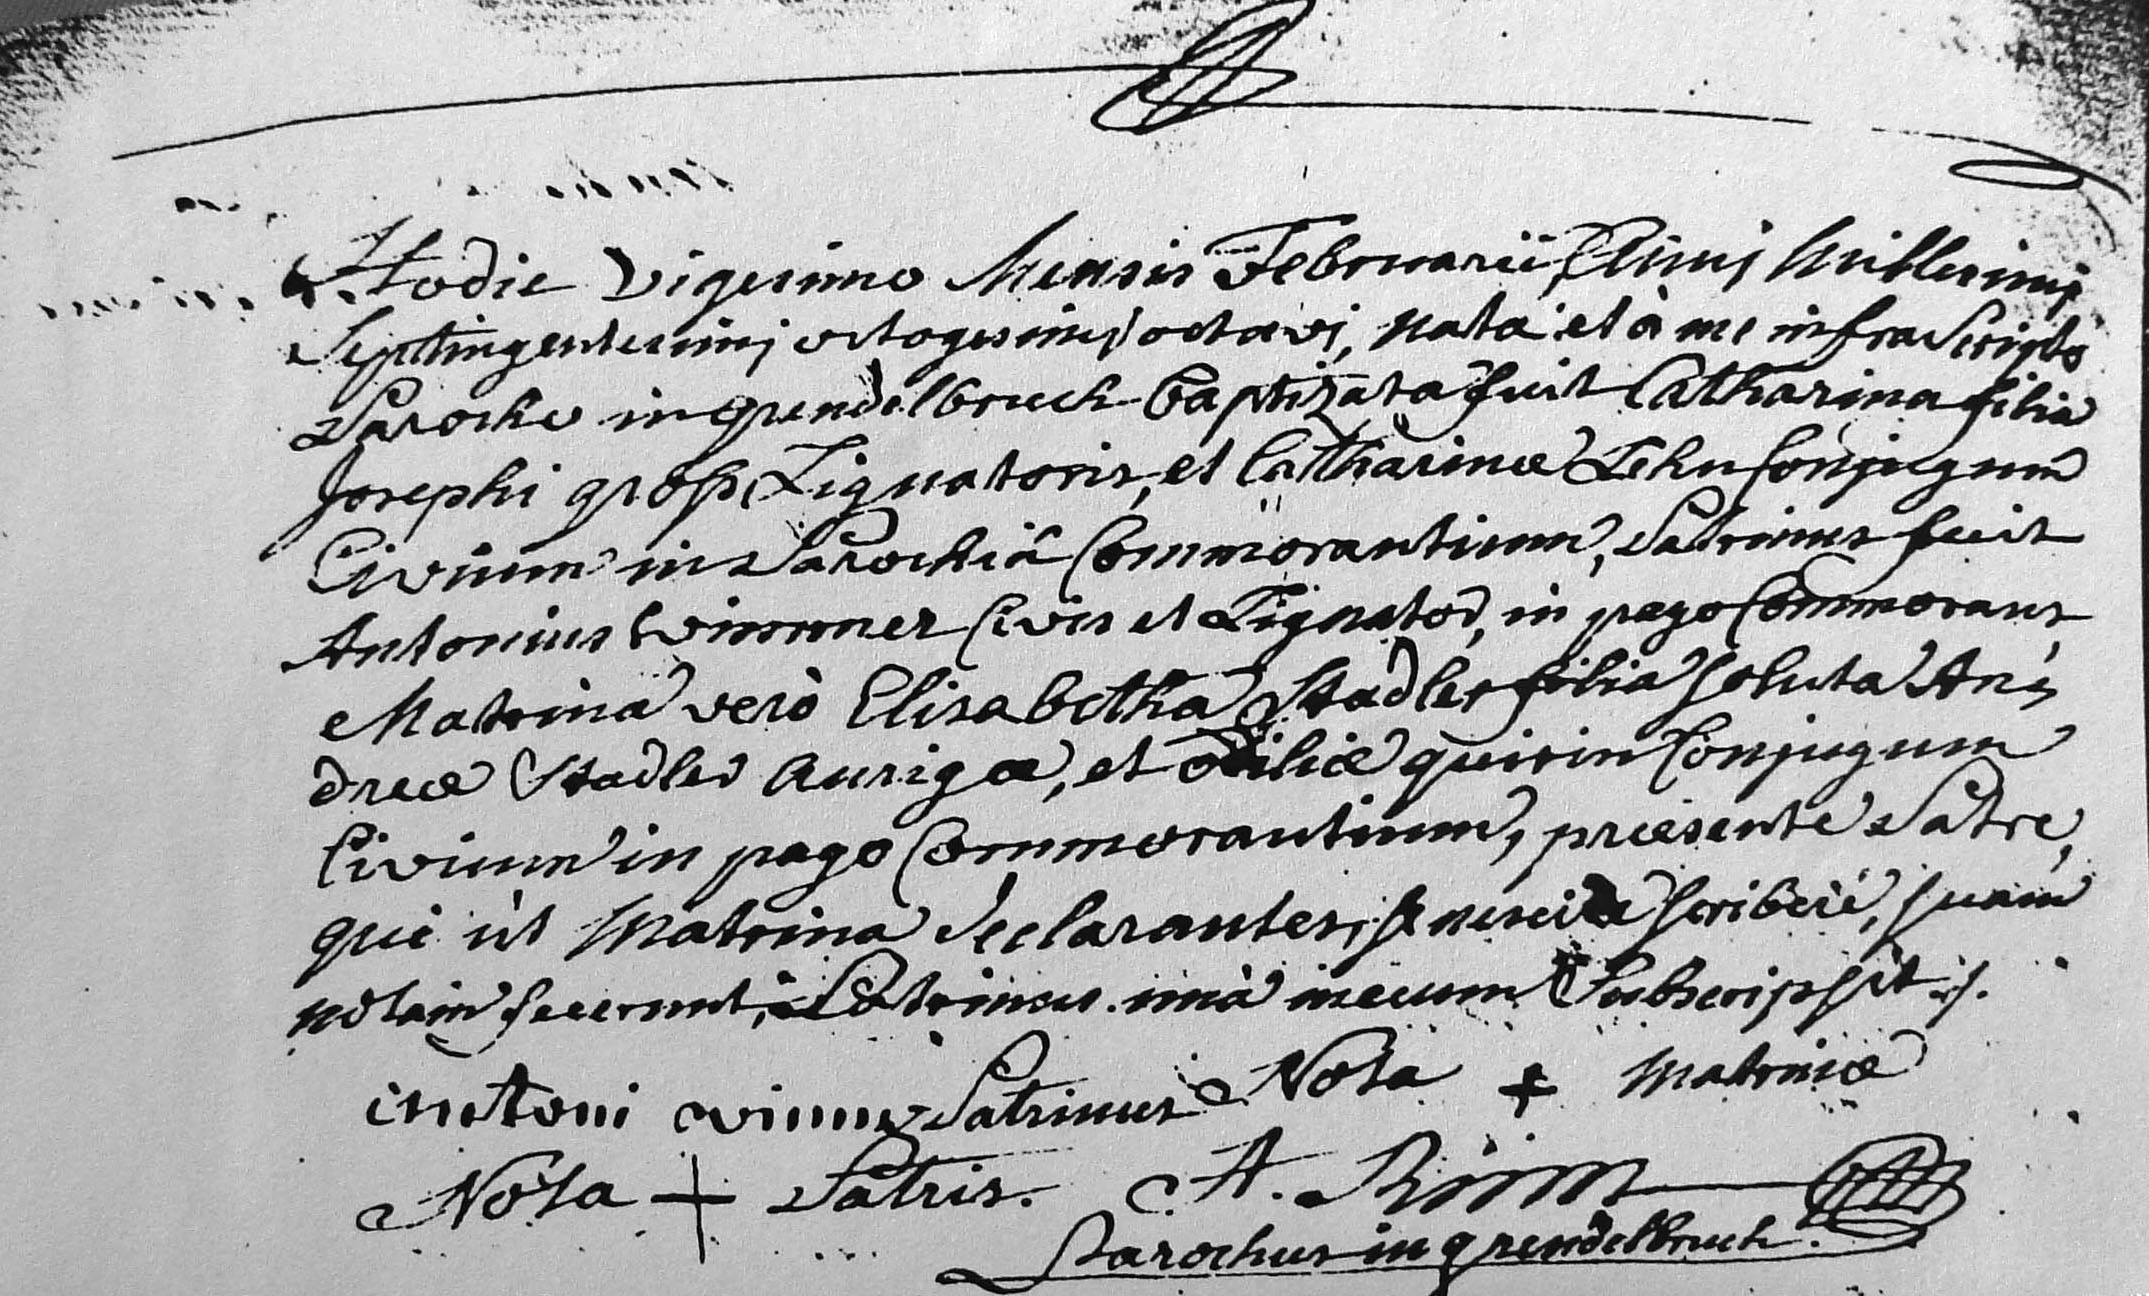 Hodie vigesimo Mensis Februarii Anni Millesimi
Septingentesimi octogesimi octavi, nata et à me infra Scripto
Parocho in grendelbruch baptizata fuit Catharina filia
Josephi gross Lignatoris, et Catharinæ Lehn Conjugum
Civium in Parochiâ Commorantium, Patrinus fuit
Antonius wimmer Civis et Lignator, in pago Commorans,
Matrina verò Elisabetha Stadler filia soluta An,
dreæ Stadler Aurigæ, et otiliæ quirin Conjugum
Civium in pago Commorantium, præsente Patre,
qui ut Matrina declarantes, se scribere, suam
notam fecerunt, Patrinus unà mecum Subscripsit ./.
antoni Patrinus Nota + Matrinæ
Nota + Patris. A.
Parochus in grendelbruch.